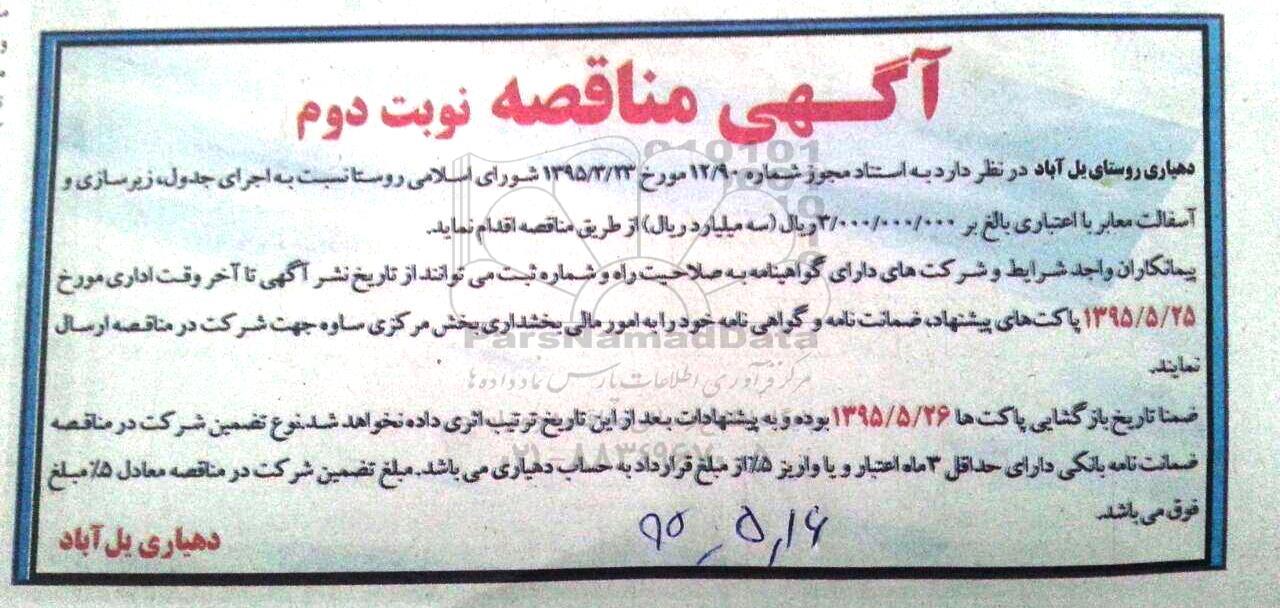 آگهی مناقصه نوبت دوم
دهیاری روستای یل آباد در نظر دارد به استناد مجوز شماره ۱۲/۹۰ مورخ ۱۳۹۵/۳/۲۳ شورای اسلامی روستا نسبت به اجرای جدول، زیرسازی و
آسفالت معابر با اعتباری بالغ بر ۳/۰۰۰/۰۰۰/۰۰۰ریال (سه میلیارد ریال) از طریق مناقصه اقدام نماید.
پیمانکاران واجد شرایط و شرکت های دارای گواهینامه به صلاحیت راه و شماره ثبت می توانند از تاریخ نشر آگهی تا آخر وقت اداری مورخ
۱۳۹۵/۵/۲۵ پاکت‌های پیشنهاد، ضمانت نامه و گواهی نامه خود را به امور مالی بخشداری بخش مرکزی ساوه جهت شرکت در مناقصه ارسال
نمایند.
ParsNamadData
مرکز فرآوری اطلاعات پارس نماد داده ها
ضمنا تاریخ بازگشایی پاکت ها ۱۳۹۵/۵/۲۶ بوده و به پیشنهادات بعد از این تاریخ ترتیب اثری داده نخواهد شد.نوع تضمین شرکت در مناقصه
ضمانت نامه بانکی دارای حداقل ۳ ماه اعتبار و یا واریز ۵٪ از مبلغ قرارداد به حساب دهیاری می باشد. مبلغ تضمین شرکت در مناقصه معادل ۵٪ مبلغ
فوق می باشد.
۹۵,۵,۱۶
دهیاری یل آباد